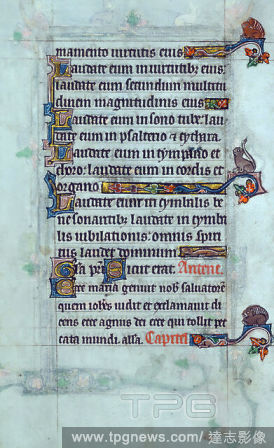 mamento virtutis eius
Laudate eum in virtutib; eius,
laudate eum secundum multitu
dinem magnitudinis eius
Laudate eum in sono tube. lau
date eum in psalterio & cythara
Laudate eum in tympano et
choro. laudate eum in cordis et
organo
Laudate eum in cymbalis be
ne sonantib; laudate in cymba
lis iubilationis omnis spiri
tus laudet dominum
Sicut erat. Antene.
Ecce maria genuit nob salvatore
quem iohes vidit et exclamavit di
cens ecce agnus dei ecce qui tollit pec
cata mundi. alla. Capitel
TPG
www.tpgnews.com/達志影像